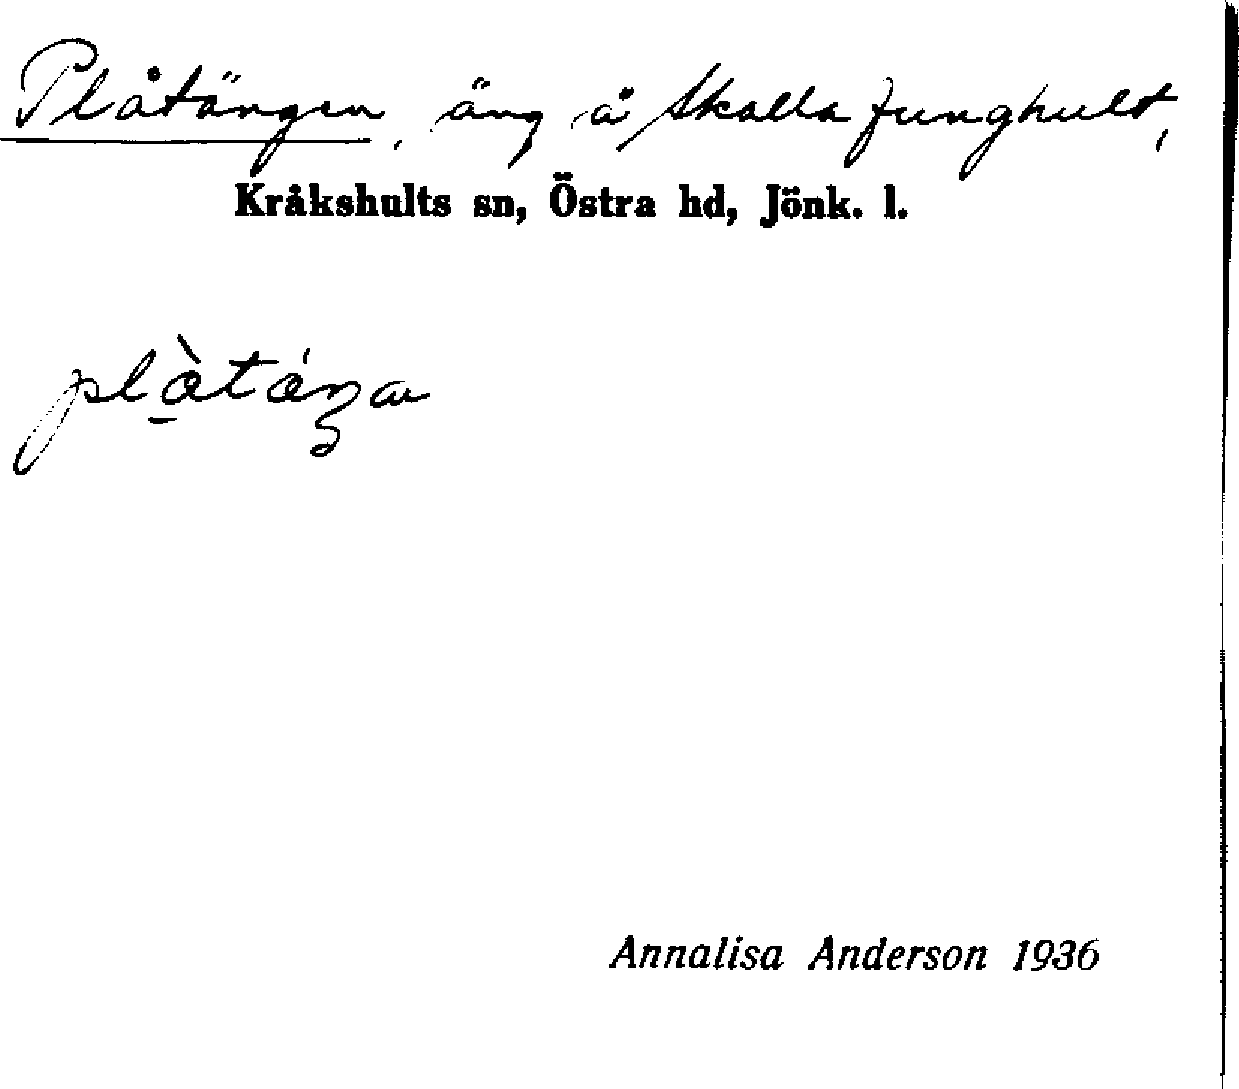 Plåtängen, äng å Skalla Junghult,
Kråkshults sn, Östra hd, Jönk. l.
Annalisa Anderson 1936